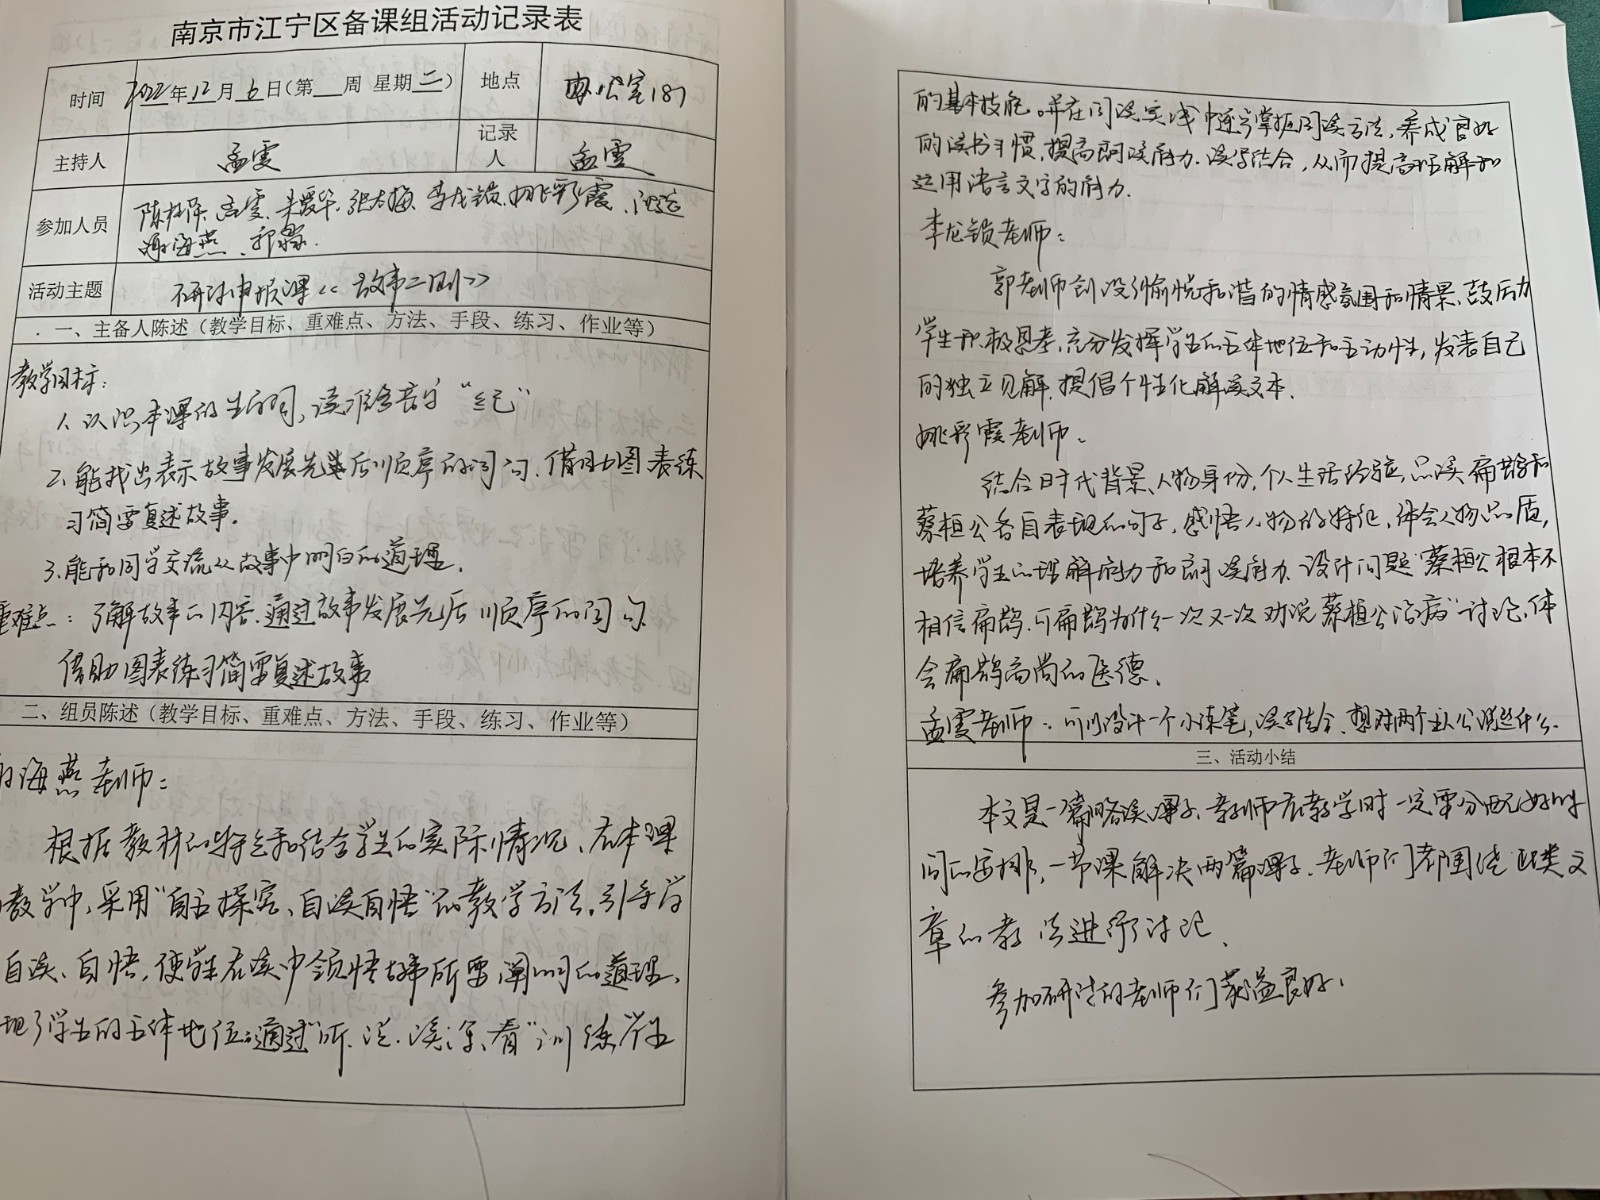 南京市江宁区备课组活动记录表
时间 2022年12月6日(第 周 星期二) 地点 办公室187
主持人 孟雯 记录人 孟雯
参加人员 孟雯、李龙锁、姚彩霞
海燕、郭
活动主题 研讨申报课《故事二则》
一、主备人陈述（教学目标、重难点、方法、手段、练习、作业等）
教学目标：
1、认识本课的生词，读准多音字“纪”
2、能找出表示故事发展先后顺序的词句，借助图表练
习简要复述故事。
3、能和同学交流从故事中明白的道理。
重难点：了解故事的内容，通过故事发展先后顺序的词句
借助图表练习简要复述故事
二、组员陈述（教学目标、重难点、方法、手段、练习、作业等）
海燕老师：
根据教材的特点和结合学生的实际情况，在本课
教学中，采用“自主探究、自读自悟”的教学方法，引导学
自读、自悟，使学生在读中领悟故事所要阐明的道理，
现了学生的主体地位，通过“听、说、读、写、看”训练学生
的基本技能。并在阅读实践中逐步掌握阅读方法，养成良好
的读书习惯，提高阅读能力，读写结合，从而提高理解和
运用语言文字的能力。
李龙锁老师：
郭老师创设了愉悦和谐的情感氛围和情景，鼓励
学生积极思考，充分发挥学生的主体地位和主动性，发表自己
的独立见解，提倡个性化解读文本。
姚彩霞老师：
结合时代背景、人物身份、个人生活经验，品读扁鹊和
蔡桓公各自表现的句子，感悟人物的特征，体会人物品质，
培养学生的理解能力和阅读能力。设计问题“蔡桓公根本不
相信扁鹊，可扁鹊为什么一次又一次劝说蔡桓公治病”讨论，体
会扁鹊高尚的医德。
孟雯老师：可以设计一个小练笔，读写结合，想对两个主人公说些什么。
三、活动小结
本文是一篇略读课文，教师在教学时一定要分配好时
间的安排，一节课解决两篇课文。老师们都围绕此类文
章的教法进行讨论。
参加研讨的老师们获益良好。